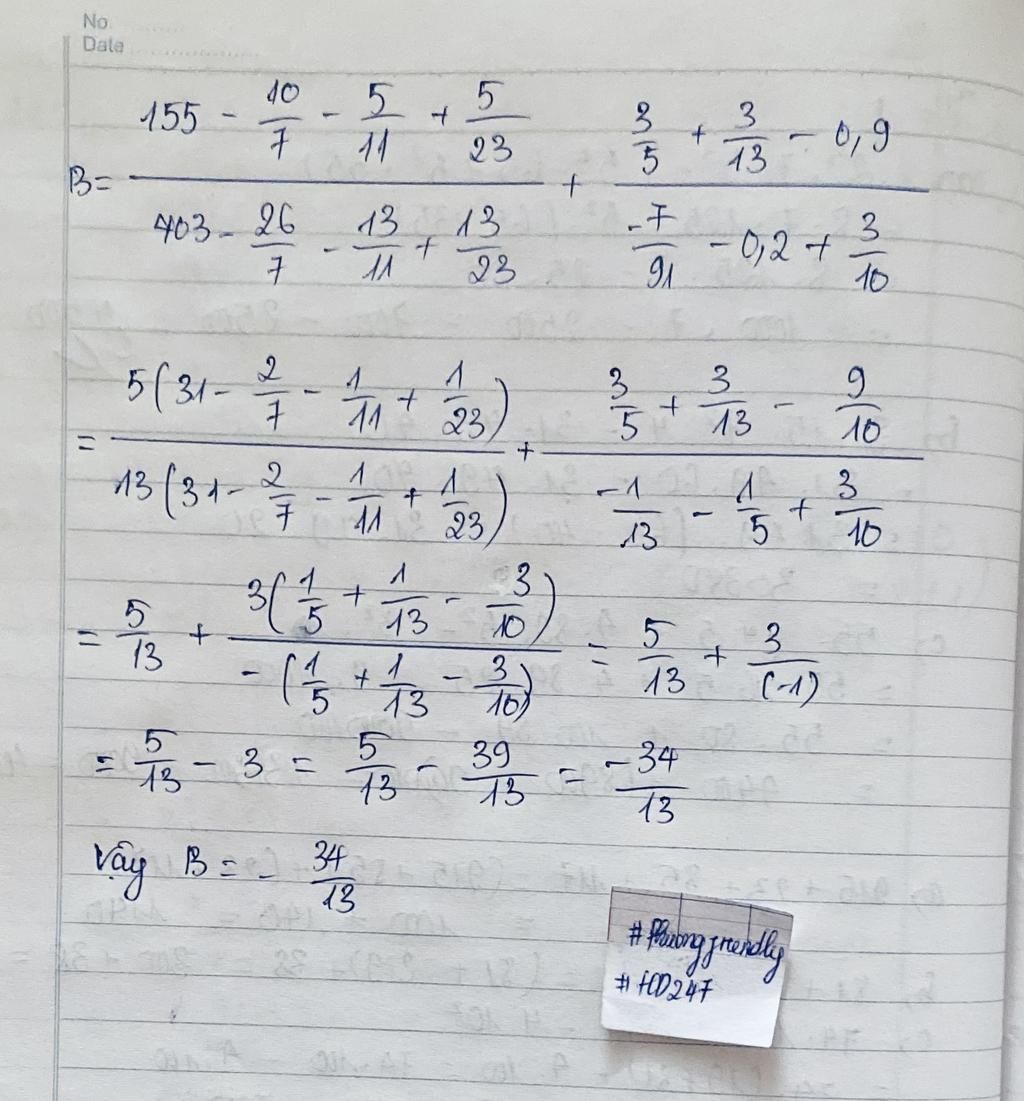 No
Date
B = (155 - 10/7 - 5/11 + 5/23)/(403 - 26/7 - 13/11 + 13/23) + (3/5 + 3/13 - 0,9)/(-7/91 - 0,2 + 3/10)
= 5(31 - 2/7 - 1/11 + 1/23)/13(31 - 2/7 - 1/11 + 1/23) + (3/5 + 3/13 - 9/10)/(-1/13 - 1/5 + 3/10)
= 5/13 + 3(1/5 + 1/13 - 3/10)/-(1/5 + 1/13 - 3/10) = 5/13 + 3/(-1)
= 5/13 - 3 = 5/13 - 39/13 = -34/13
Vậy B = - 34/13
#Phuongfriendly
#HD247